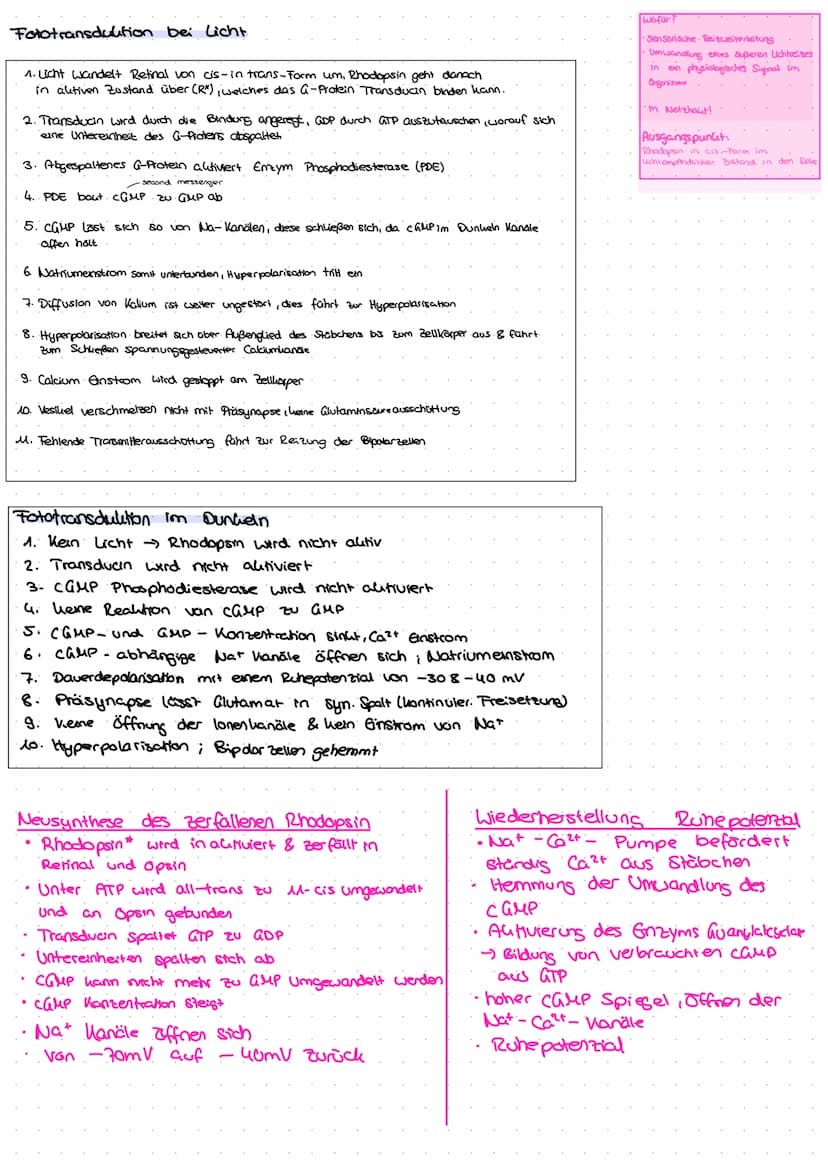 Fototransduktion bei Licht
1. Licht wandelt Retinal von cis- in trans-Form um, Rhodopsin geht danach
in aktiven Zustand über (R*), welches das G-Protein Transducin binden kann.
2. Transducin wird durch die Bindung angeregt, GDP durch GTP auszutauschen, worauf sich
eine Untereinheit des G-Proteins abspaltet
3. Abgespaltenes G-Protein aktiviert Enzym Phosphodiesterase (PDE)
second messenger
4. PDE baut cGMP zu GMP ab
5. cGMP löst sich so von Na-Kanälen, diese schließen sich, da cGMP im Dunkeln Kanäle
offen hält
6. Natriumeinstrom somit unterbunden, Hyperpolarisation tritt ein
7. Diffusion von Kalium ist weiter ungestört, dies führt zur Hyperpolarisation
8. Hyperpolarisation breitet sich über Außenglied des Stäbchens bis zum Zellkörper aus & führt
zum Schließen spannungsgesteuerter Calciumkanäle
9. Calcium Einstrom wird gestoppt am Zellkörper
10. Vesikel verschmelzen nicht mit Präsynapse, keine Glutaminsäureausschüttung
11. Fehlende Transmitterausschüttung führt zur Reizung der Bipolarzellen
Wofür?
· Sensorische Reizweiterleitung
· Umwandlung eines äußeren Lichtreizes
in ein physiologisches Signal im
Organismus
in Netzhaut!
Ausgangspunkt:
Rhodopsin in cis-Form im
lichtempfindlichen Zustand in den Disks
Fototransduktion im Dunkeln
1. Kein Licht → Rhodopsin wird nicht aktiv
2. Transducin wird nicht aktiviert
3. cGMP Phosphodiesterase wird nicht aktiviert
4. keine Reaktion von cGMP zu GMP
5. cGMP- und GMP-Konzentration sinkt, Ca²⁺ Einstrom
6. cGMP-abhängige Na⁺ Kanäle öffnen sich; Natriumeinstrom
7. Dauerdepolarisation mit einem Ruhepotenzial von -30 & -40 mV
8. Präsynapse lässt Glutamat in syn. Spalt (kontinuier. Freisetzung)
9. Keine Öffnung der Ionenkanäle & kein Einstrom von Na⁺
10. Hyperpolarisation; Bipolarzellen gehemmt
Neusynthese des zerfallenen Rhodopsin
· Rhodopsin* wird inaktiviert & zerfällt in
Retinal und Opsin
· Unter ATP wird all-trans zu 11-cis umgewandelt
und an Opsin gebunden
· Transducin spaltet GTP zu GDP
· Untereinheiten spalten sich ab
· cGMP kann nicht mehr zu GMP umgewandelt werden
· cGMP Konzentration steigt
· Na⁺ Kanäle öffnen sich
· Von -70mV auf -40mV zurück
Wiederherstellung Ruhepotenzial
· Na⁺-Ca²⁺- Pumpe befördert
ständig Ca²⁺ aus Stäbchen
· Hemmung der Umwandlung des
cGMP
· Aktivierung des Enzyms Guanylatcyclas
→ Bildung von verbrauchten cGMP
aus GTP
· hoher cGMP Spiegel, Öffnen der
Na⁺-Ca²⁺-Kanäle
· Ruhepotenzial